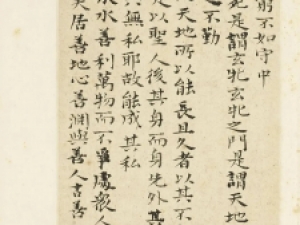 窮不如守中
死是謂玄牝玄牝之門是謂天地
之不勤
天地所以能長且久者以其不
是以聖人後其身而身先外其
無私耶故能成其私
水善利萬物而不爭處衆人
居善地心善淵與善人言善